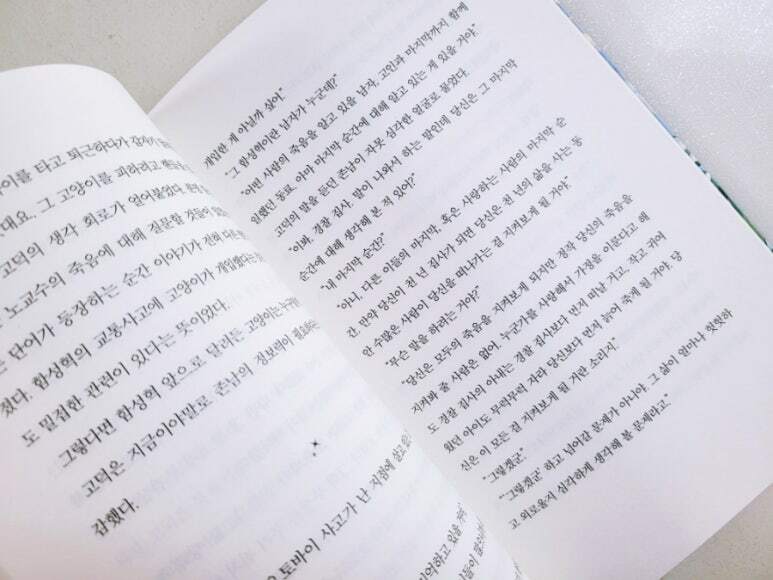 이를 타고 퇴근하다가 갑자기
대요. 그 고양이를 피하려고
고덕의 생각 회로가 얽어붙었다.
노교수의 죽음에 대해 질문할 것들이
단어가 등장하는 순간 이야기가 전혀
졌다. 함성혁의 교통사고에 고양이가 개입했다는
도 밀접한 관련이 있다는 뜻이었다.
그렇다면 함성혁 앞으로 달려든 고양이는
고덕은 지금이야말로 존남의 정보력이
감했다.
토바이 사고가 난 지점에
억하고 있을
개입한 게 아닐까 싶어.”
“그 함성혁이란 남자가 누군데?”
“어떤 사람의 죽음을 알고 있을 남자. 고인과 마지막까지 함께
일했던 동료. 아마 마지막 순간에 대해 알고 있는 게 있을 거야.”
고덕의 말을 듣던 존남이 자못 심각한 얼굴로 물었다.
“이봐, 경찰 집사. 말이 나와서 하는 말인데 당신은 그 마지막
순간에 대해 생각해 본 적 있어?”
“내 마지막 순간?”
“아니, 다른 이들의 마지막, 혹은 사랑하는 사람의 마지막 순
간. 만약 당신이 천 년 집사가 되면 당신은 천 년의 삶을 사는 동
안 수많은 사람이 당신을 떠나가는 걸 지켜보게 될 거야.”
“무슨 말을 하려는 거야?”
“당신은 모두의 죽음을 지켜보게 되지만 정작 당신의 죽음을
지켜봐 줄 사람은 없어. 누군가를 사랑해서 가정을 이룬다고 해
도 경찰 집사의 아내는 경찰 집사보다 먼저 떠날 거고, 작고 귀여
웠던 아이도 무럭무럭 자라 당신보다 먼저 늙어 죽게 될 거야. 당
신은 이 모든 걸 지켜보게 될 거란 소리지.”
“그렇겠군.”
“‘그렇겠군’ 하고 넘어갈 문제가 아니야. 그 삶이 얼마나 헛헛하
고 외로울지 심각하게 생각해 볼 문제라고.”